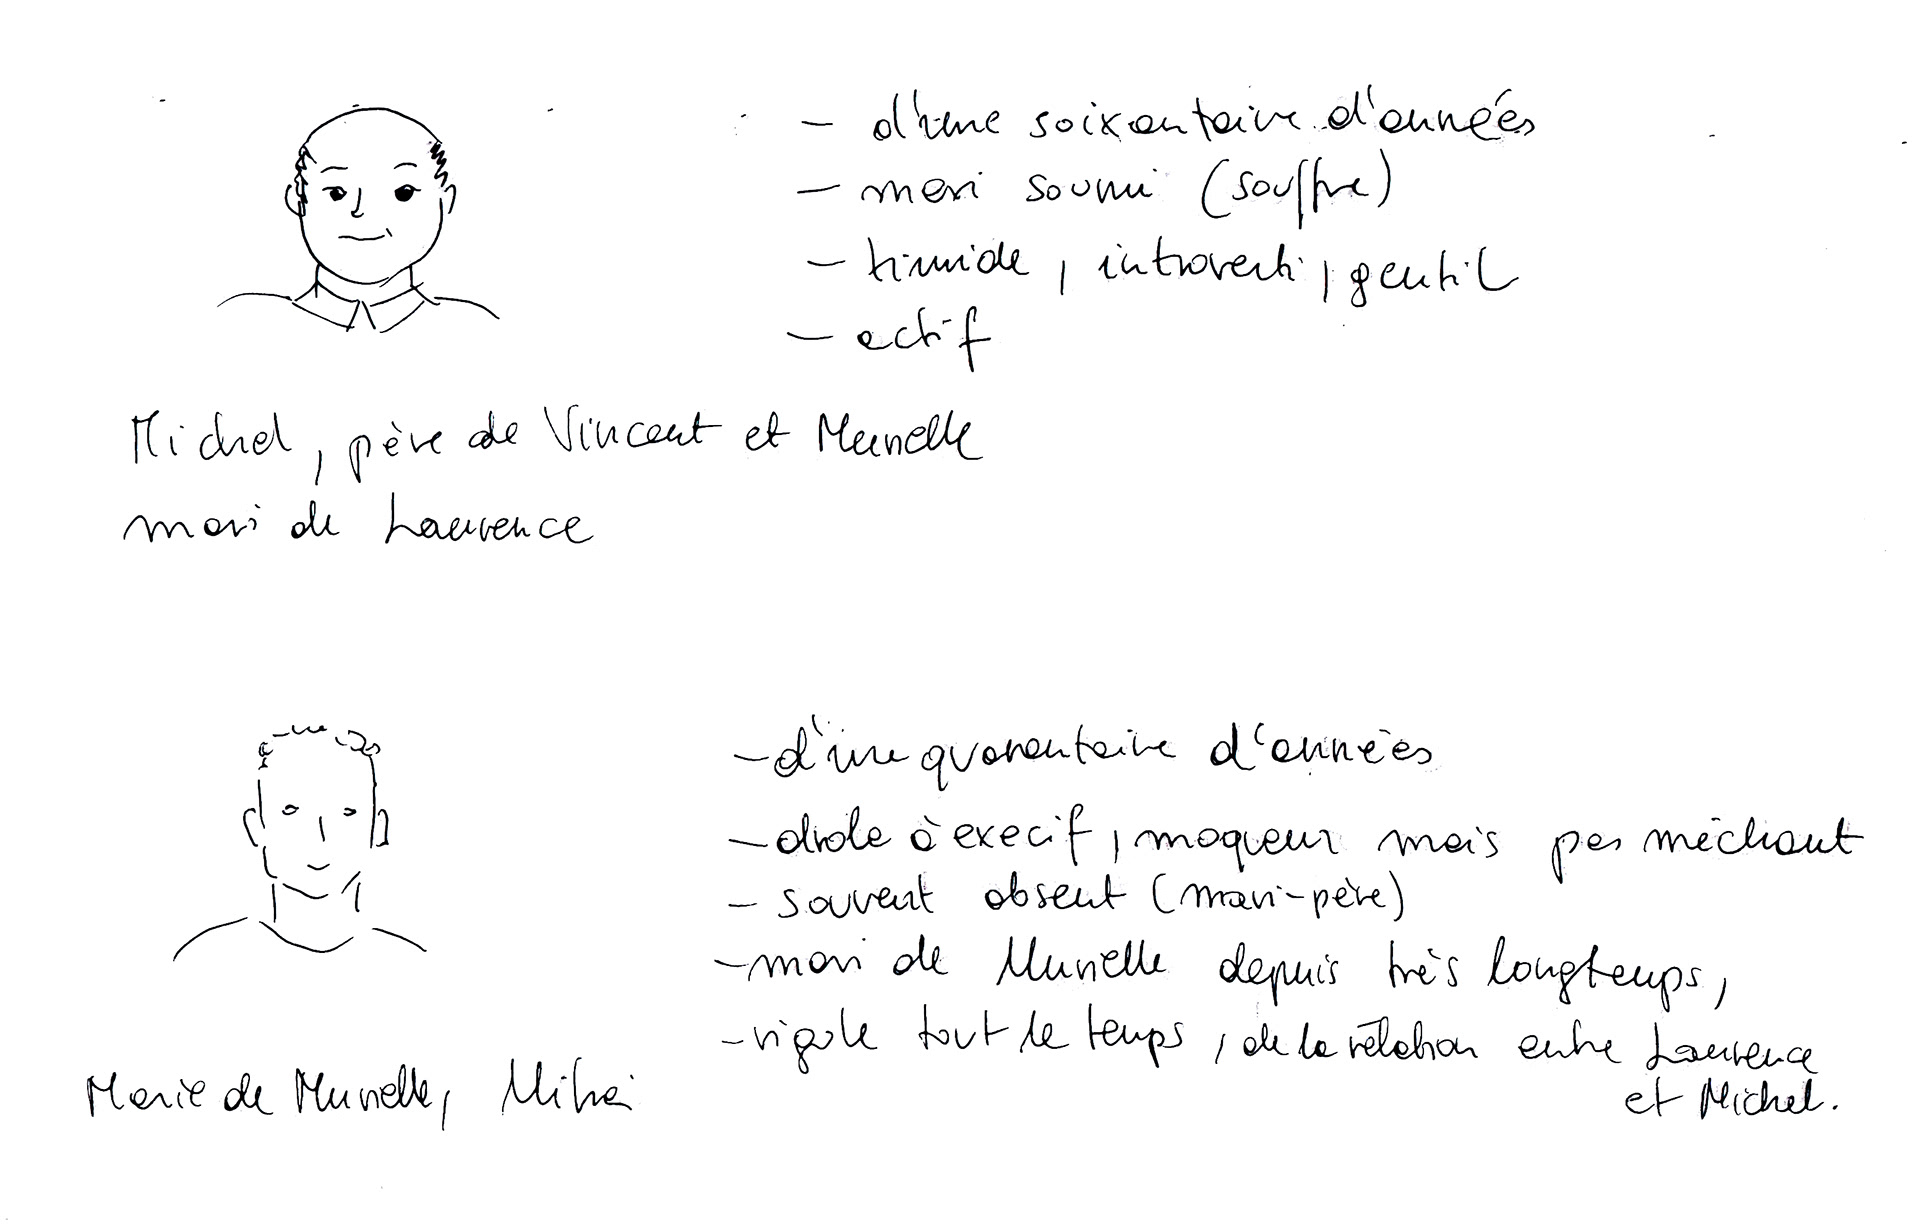 - d'une soixantaine d'années
- mari soumi (souffre)
- timide, introverti, gentil
- actif
Michel, père de Vincent et Murielle
mari de Laurence
- d'une quarantaine d'années
- drole à execif, moqueur mais pas méchant
- souvent absent (mari-père)
- mari de Murielle depuis très longtemps,
- rigole tout le temps, de la rélation entre Laurence
et Michel.
Marie de Murielle, Mihai